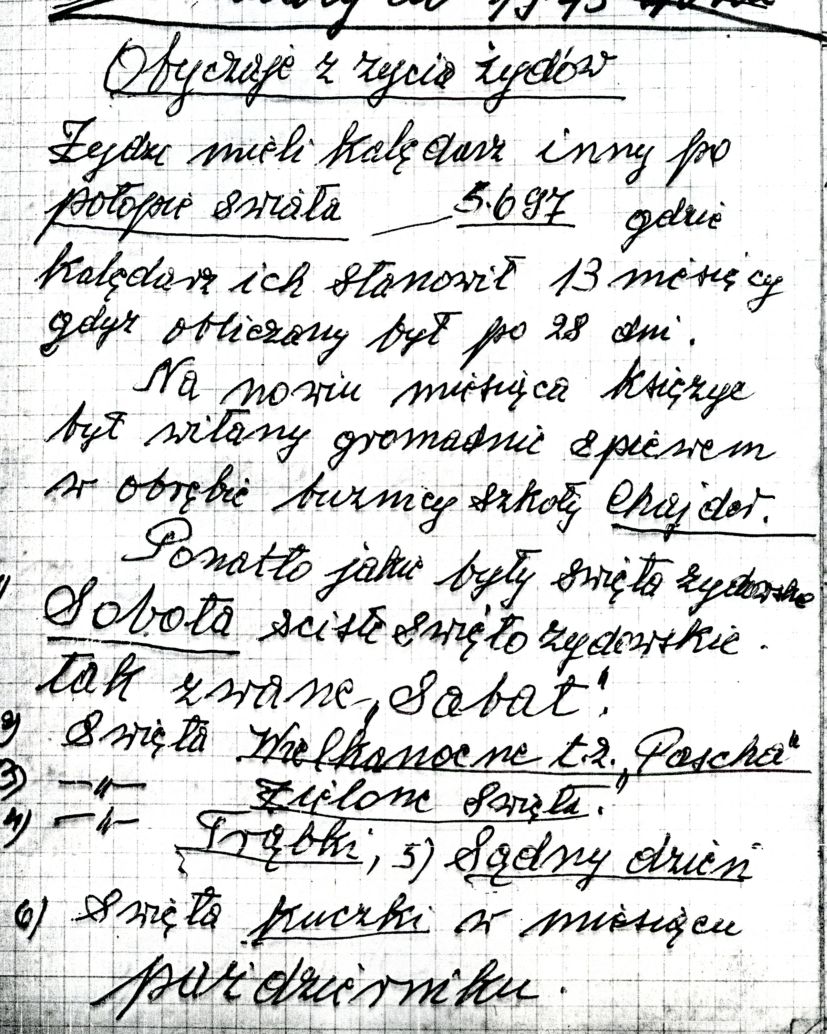 1943
Obyczaje z zycia żydów
Żydzi mieli kalędarz inny po
potopie świata — 5.697 gdzie
kalędarz ich stanowił 13 miesięcy
gdyż obliczany był po 28 dni.
Na nowiu miesiąca księżyc
był witany gromadnie spiewem
w obrębie buznicy szkoły Chajder.
Ponatto jakie były święta zydowskie
1) Sobota sciśle święto zydowskie.
tak zwane „Sabat".
2) Swięta Wielkanocne t.z. „Pascha"
3) —"— Zielone Swięta."
4) —"— Trąbki, 5) Sądny dzień
6) Swięta Kuczki w miesiącu
październiku.